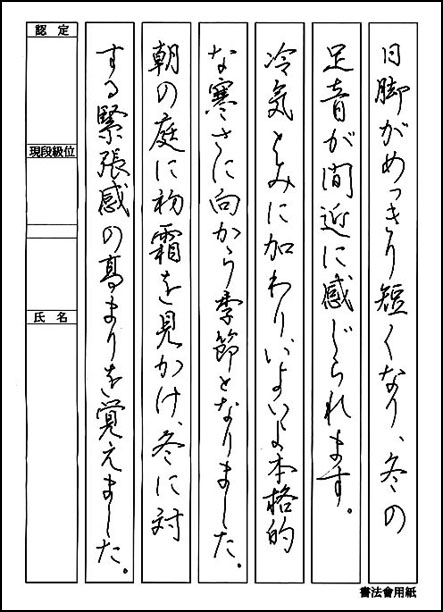 日脚がめっきり短くなり、冬の
足音が間近に感じられます。
冷気とみに加わり、いよいよ本格的
な寒さに向かう季節となりました。
朝の庭に初霜を見かけ、冬に対
する緊張感の高まりを覚えました。
認定
現段級位
氏名
書法會用紙